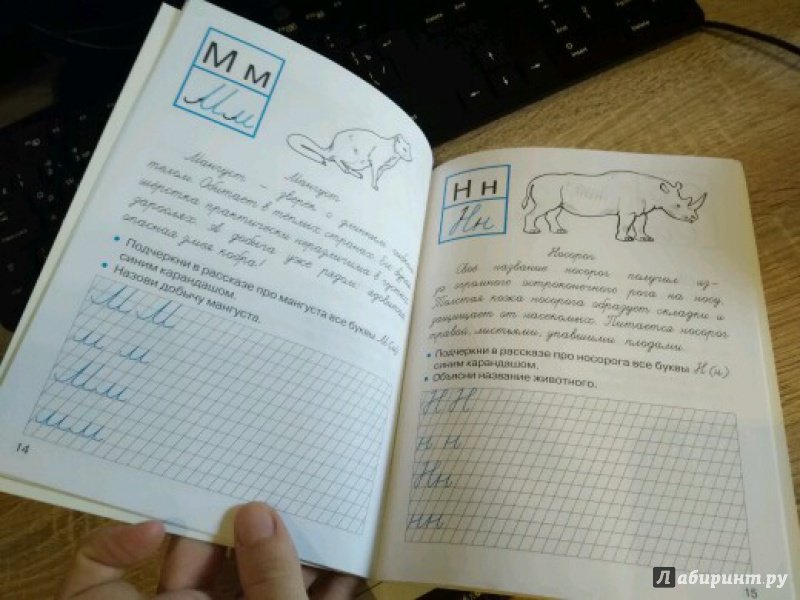 М м
Мм
Мангуст
Мангуст – зверёк с длинным гибким
телом. Обитает в тёплых странах. Его бурая
шёрстка практически неразличима в
зарослях. А добыча уже рядом: ядовитая,
опасная змея кобра!
• Подчеркни в рассказе про мангуста все буквы М (м)
синим карандашом.
• Назови добычу мангуста.
М М
м м
Мм
мм
14
Н н
Нн
Носорог
Своё название носорог получил из-
за огромного остроконечного рога на носу.
Толстая кожа носорога образует складки и
защищает от насекомых. Питается носорог
травой, листьями, упавшими плодами.
• Подчеркни в рассказе про носорога все буквы Н (н)
синим карандашом.
• Объясни название животного.
Н Н
н н
Нн
нн
15
Лабиринт.ру